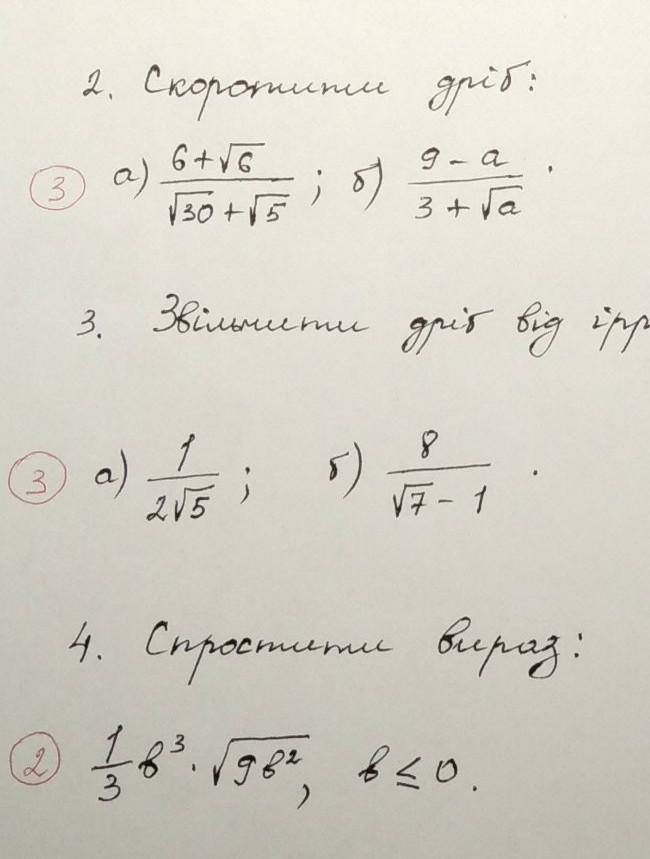 2. Скоротити дріб:
3 а) (6+√6)/(√30+√5); б) (9-a)/(3+√a).
3. Звільнити дріб від ірр
3 а) 1/(2√5); б) 8/(√7-1).
4. Спростити вираз:
2 1/3 в³·√(9в²), в ≤ 0.